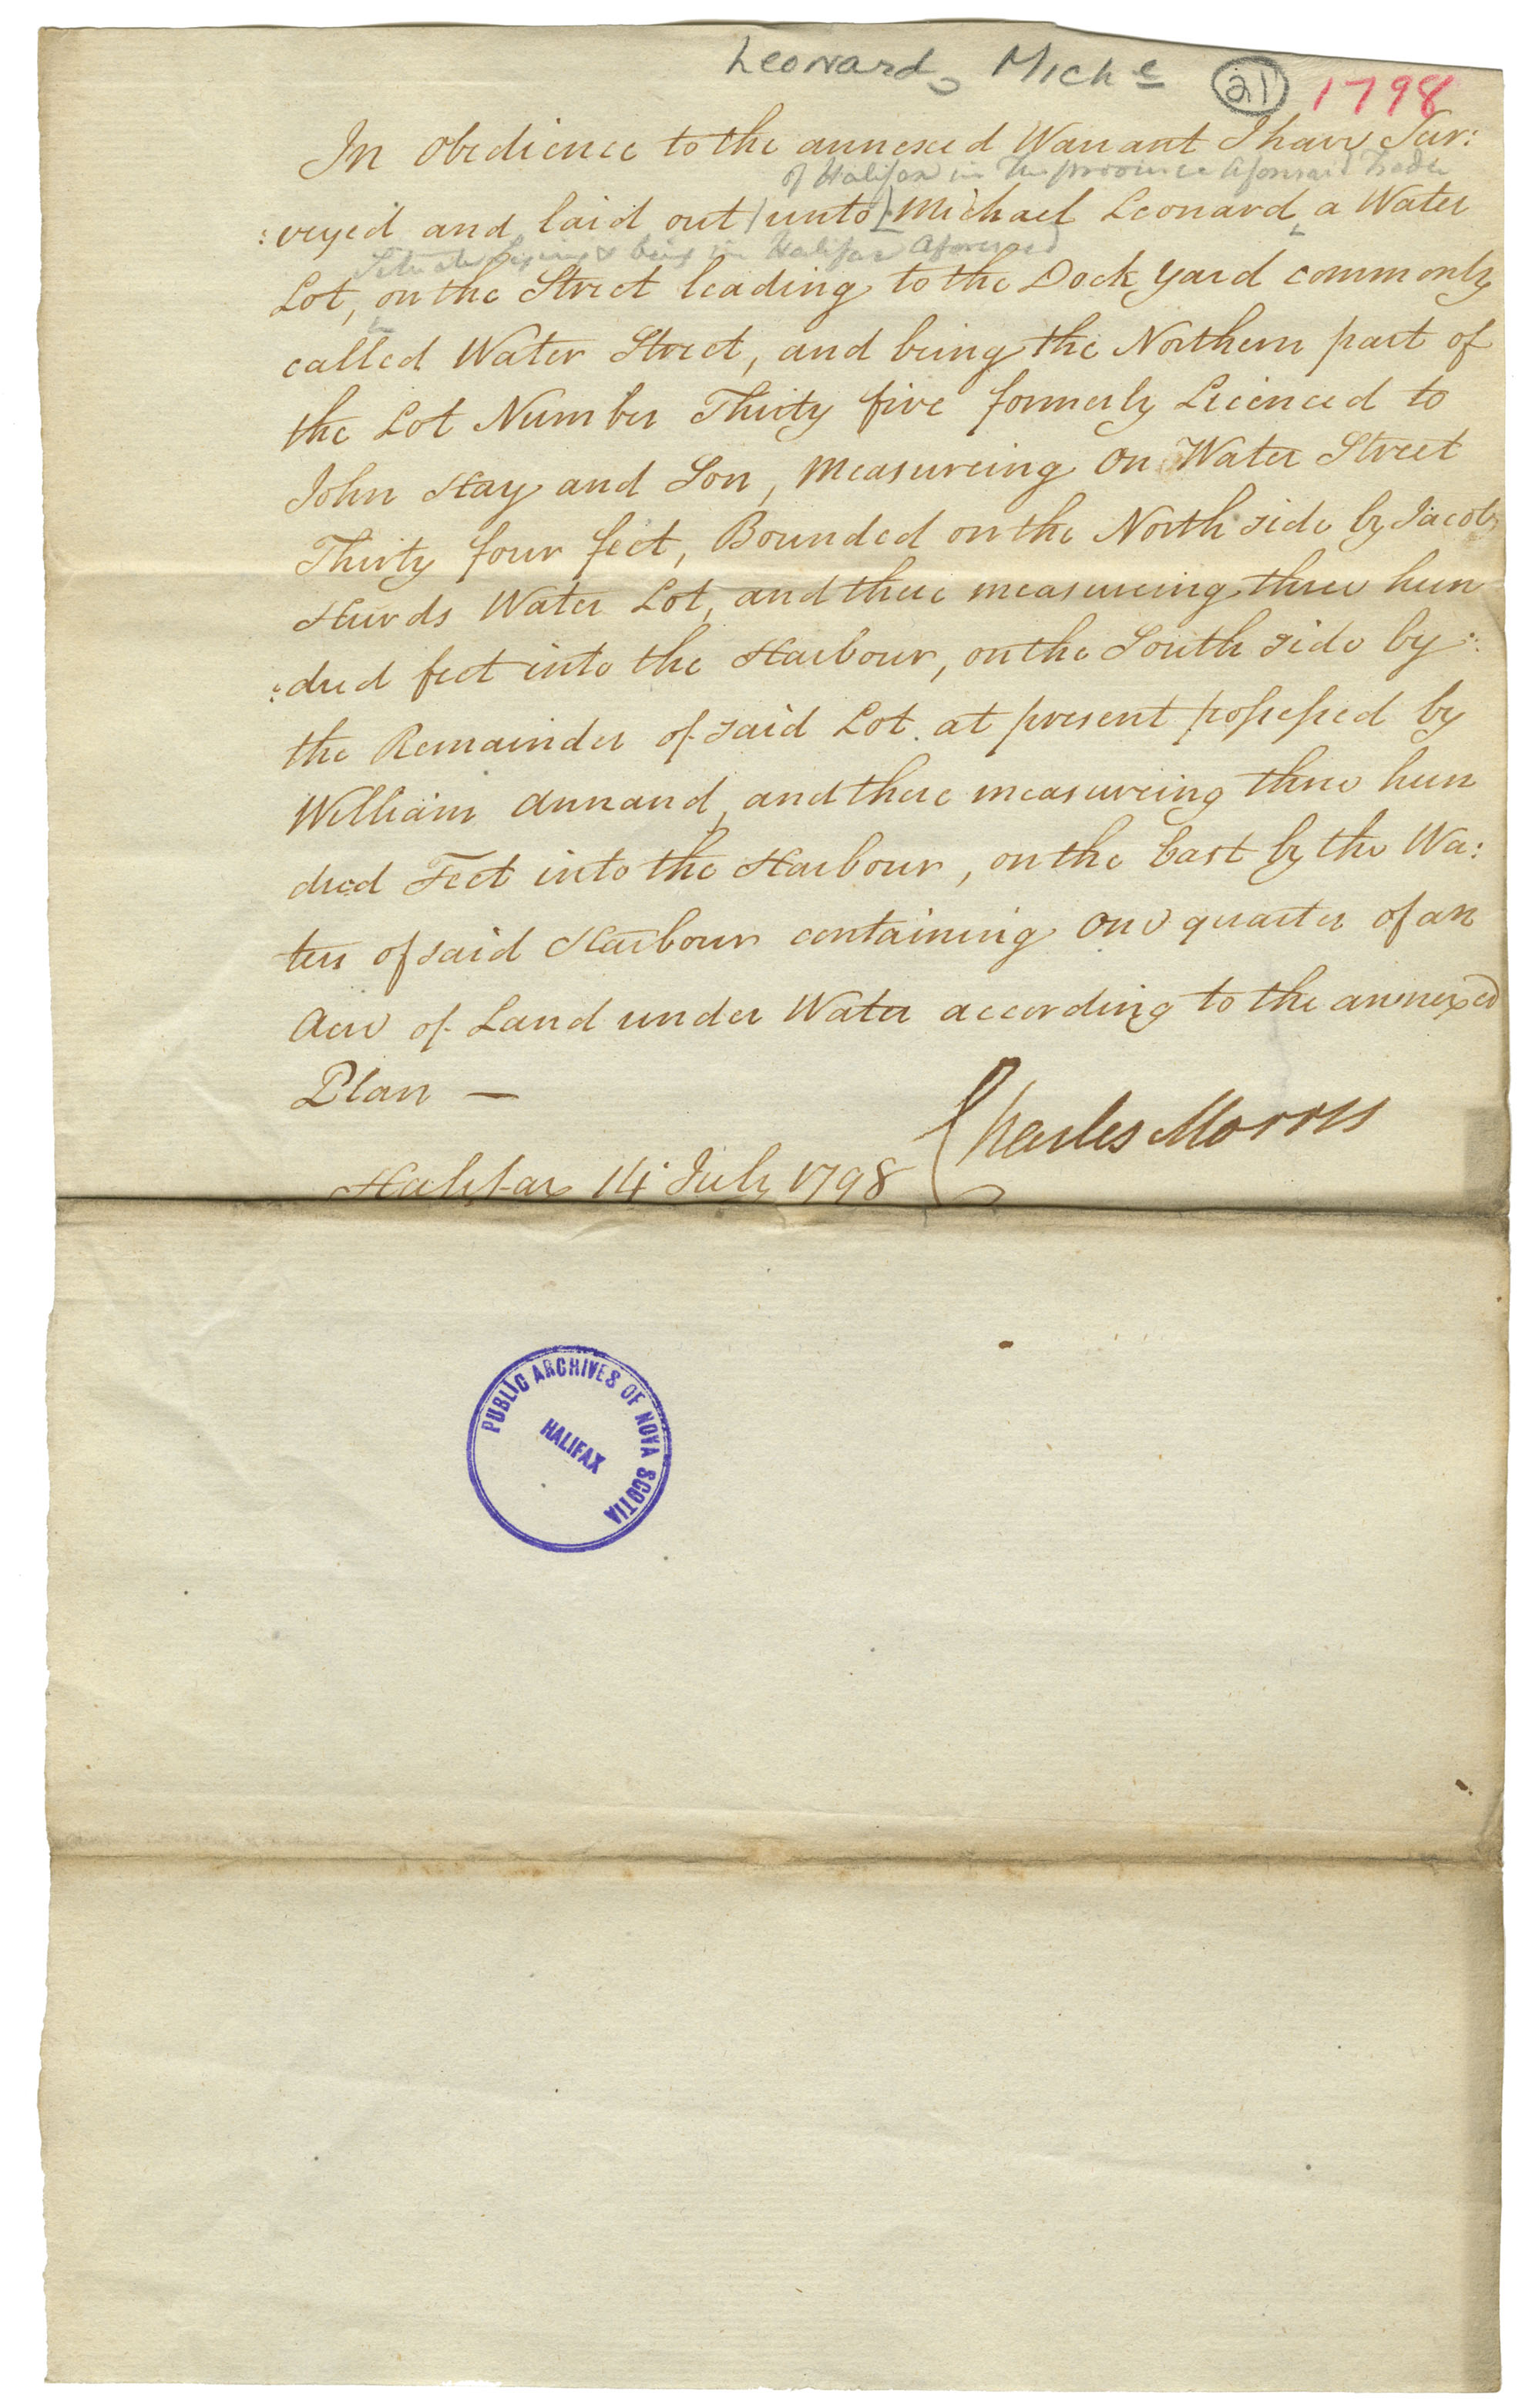 Leonard, Mich<sup>e</sup> 21 1798
In Obedience to the annexed Warrant I have Sur:
of Halifax in The province aforesaid Trader
:veyed and laid out unto Michael Leonard a Water
Situate Lying & being in Halifax aforesaid
Lot, on the Street leading to the Dock yard commonly
called Water Street, and being the Northern part of
the Lot Number Thirty five formerly Licenced to
John Hay and Son, Measureing on Water Street
Thirty four feet, Bounded on the North side by Jacob
Hurds Water Lot, and there measureing three hun
:dred feet into the Harbour, on the South side by:
the Remainder of said Lot. at present possessed by
William Annand, and there measureing three hun
dred Feet into the Harbour, on the East by the Wa:
ters of said Harbour containing one quarter of an
Acre of Land under Water according to the annexed
Plan —
Charles Morris
Halifax 14 July 1798
PUBLIC ARCHIVES OF NOVA SCOTIA
HALIFAX